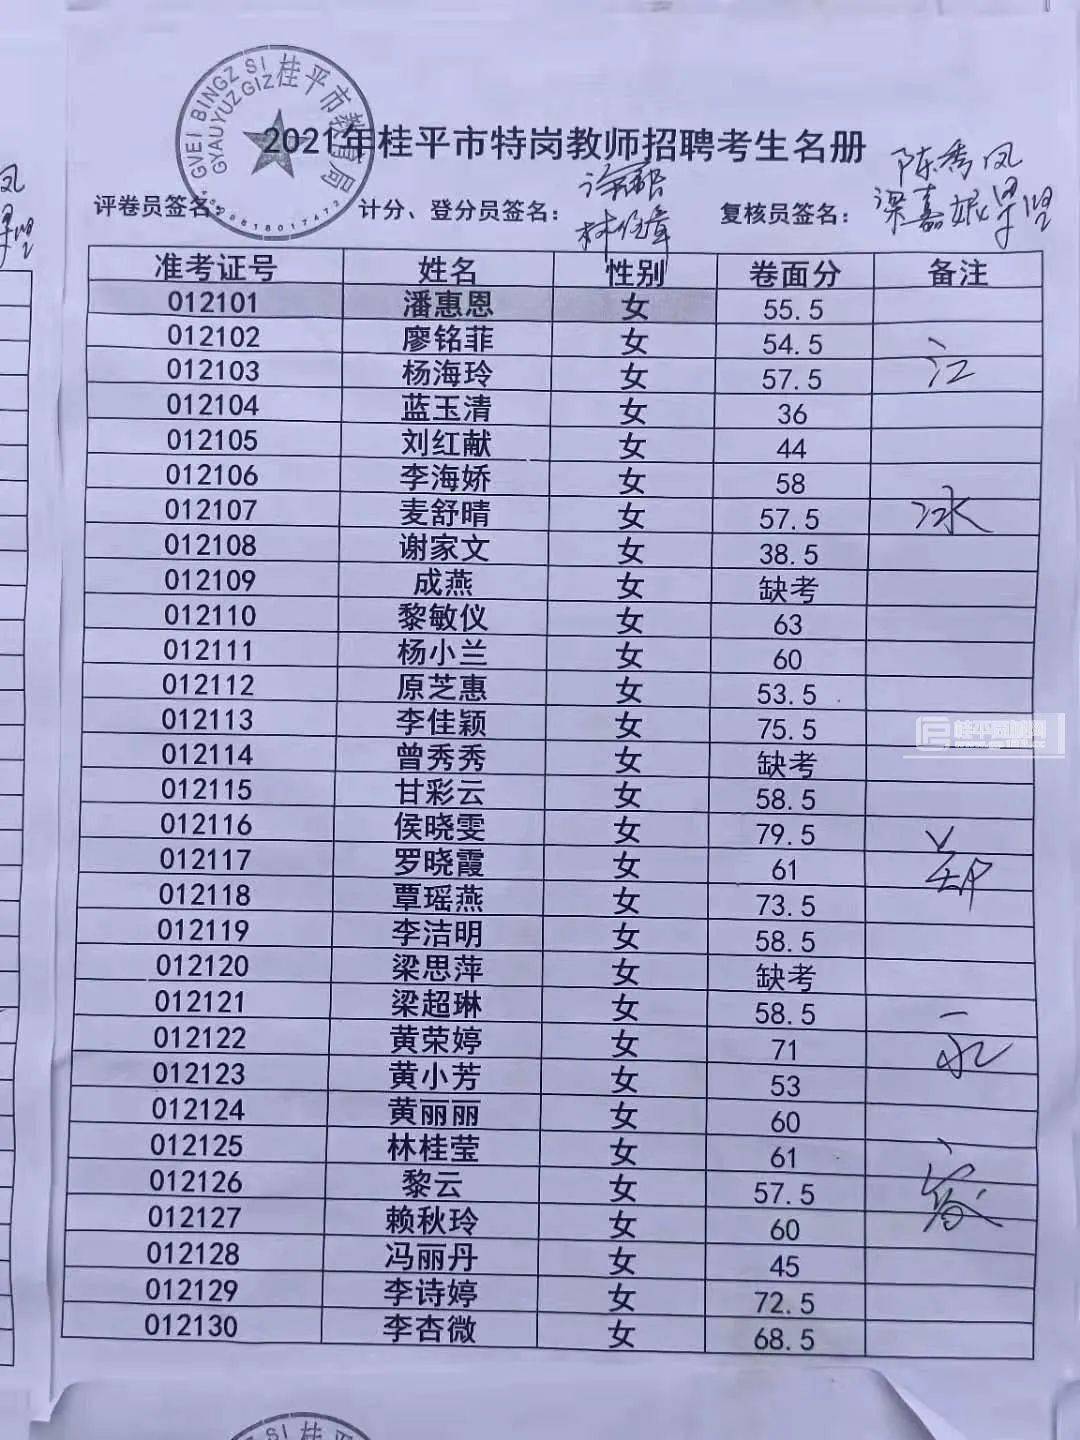 GVEI BINGZ SI 桂平市教育局
GYAUYUZ GIZ
2021年桂平市特岗教师招聘考生名册
陈秀凤
评卷员签名: 计分、登分员签名: 复核员签名:
准考证号 姓名 性别 卷面分 备注
012101 潘惠恩 女 55.5
012102 廖铭菲 女 54.5
012103 杨海玲 女 57.5 江
012104 蓝玉清 女 36
012105 刘红献 女 44
012106 李海娇 女 58
012107 麦舒晴 女 57.5
012108 谢家文 女 38.5
012109 成燕 女 缺考
012110 黎敏仪 女 63
012111 杨小兰 女 60
012112 原芝惠 女 53.5
012113 李佳颖 女 75.5
012114 曾秀秀 女 缺考
012115 甘彩云 女 58.5
012116 侯晓雯 女 79.5
012117 罗晓霞 女 61
012118 覃瑶燕 女 73.5
012119 李洁明 女 58.5
012120 梁思萍 女 缺考
012121 梁超琳 女 58.5
012122 黄荣婷 女 71
012123 黄小芳 女 53
012124 黄丽丽 女 60
012125 林桂莹 女 61
012126 黎云 女 57.5
012127 赖秋玲 女 60
012128 冯丽丹 女 45
012129 李诗婷 女 72.5
012130 李杏微 女 68.5